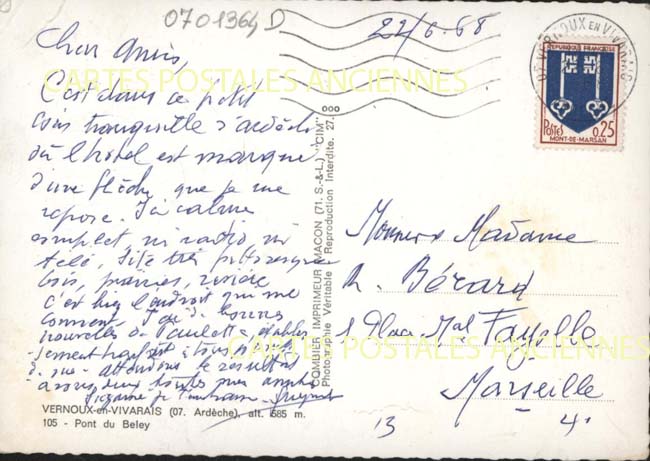 0701364 D
22/6-68
VERNOUX EN VIVARAIS
07
REPUBLIQUE FRANÇAISE
POSTES 0,25
MONT-DE-MARSAN
CARTES POSTALES ANCIENNES
Chers Amis,
C'est dans ce petit
coin tranquille d'ardèche
où l'hôtel est marqué
d'une flèche que je me
repose. Ici calme
complet ni radio ni
télé, site très pittoresque
bois, prairies, rivière
c'est bien l'endroit qui me
convient. J'ai de bonnes
nouvelles de Paulette
à tous
attendons le résultat
à vous deux toutes mes amitiés
COMBIER IMPRIMEUR MACON (71. S.-&-L.) "CIM"
Photographie Véritable - Reproduction Interdite. 27.
Monsieur Madame
Bérard
1 Place Mal Fayolle
CARTES POSTALES ANCIENNES
Marseille
13 4e
VERNOUX-en-VIVARAIS (07. Ardèche), alt. 585 m.
105 - Pont du Beley